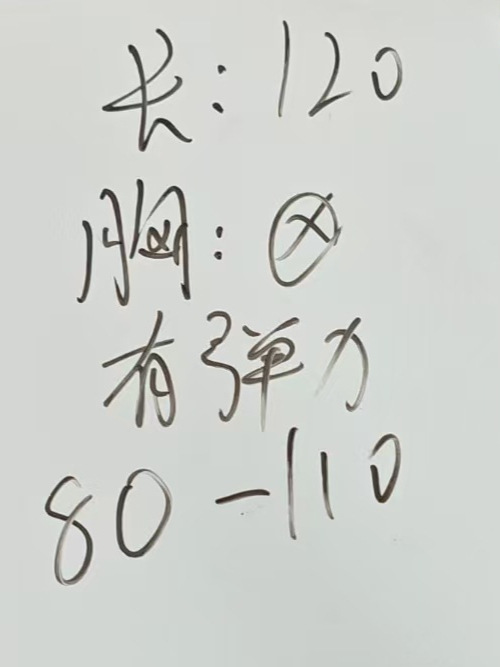 长：120
胸：ⓧ
有弹力
80-110